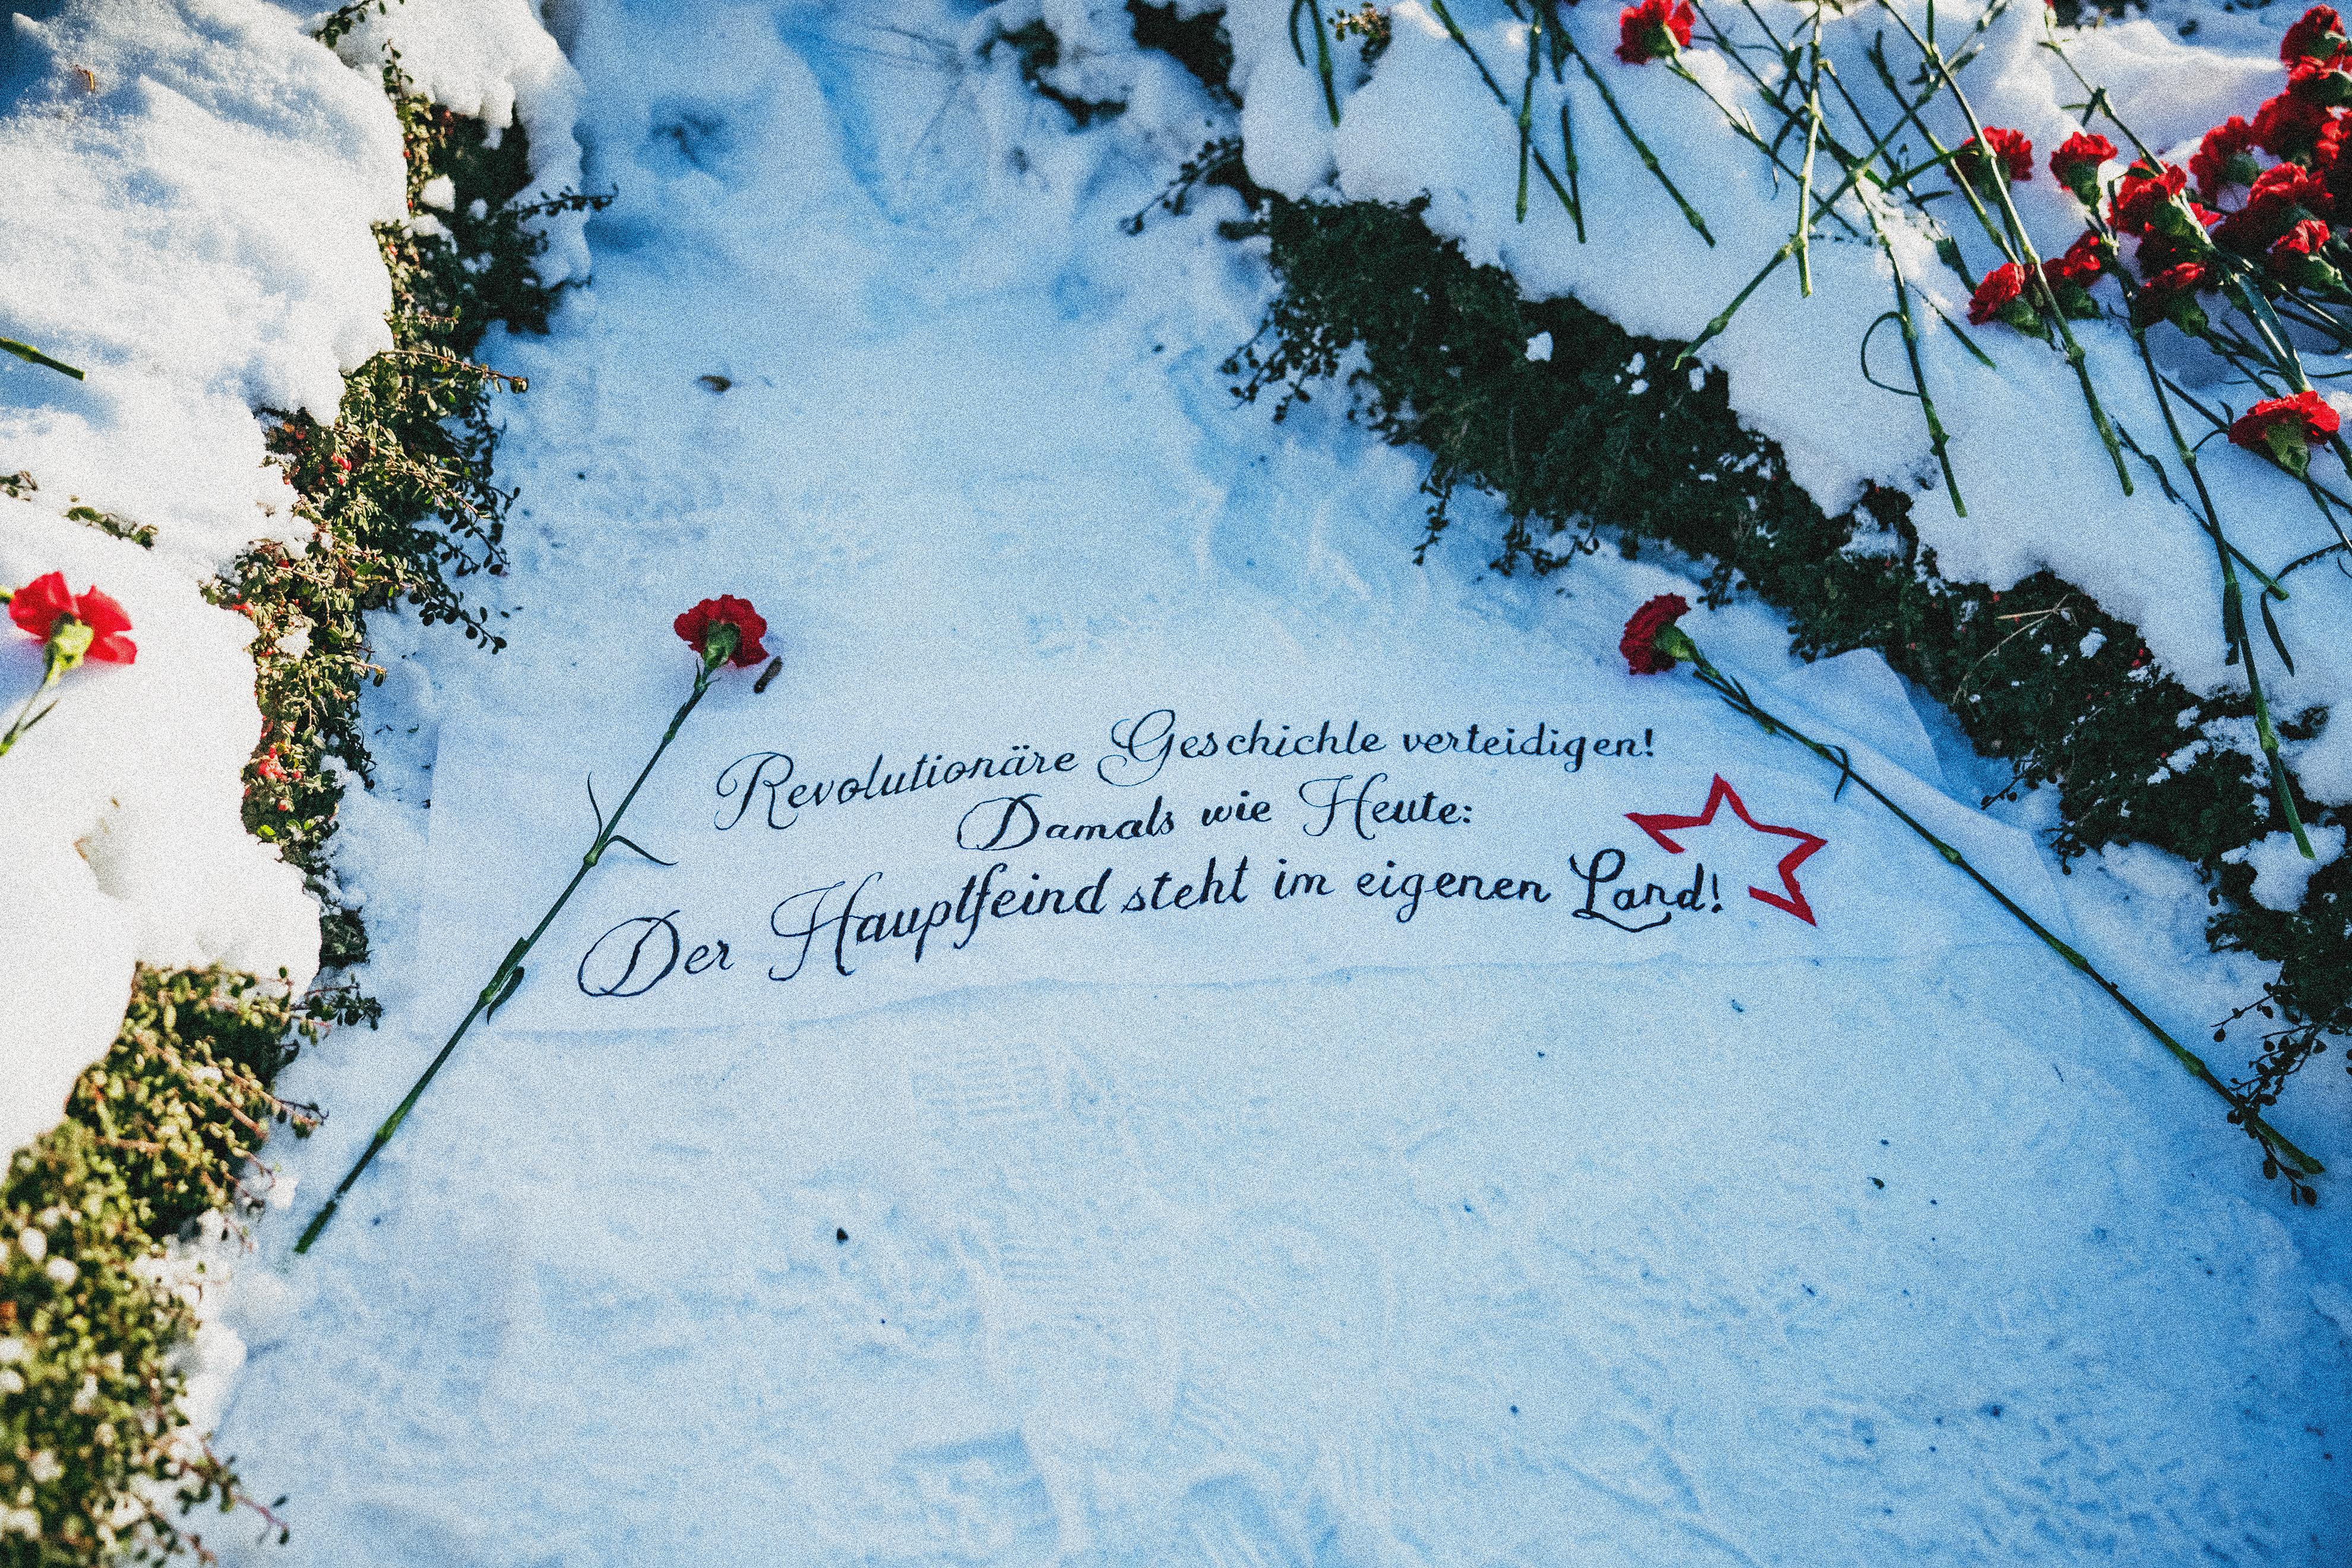 Revolutionäre Geschichte verteidigen!
Damals wie Heute:
Der Hauptfeind steht im eigenen Land!